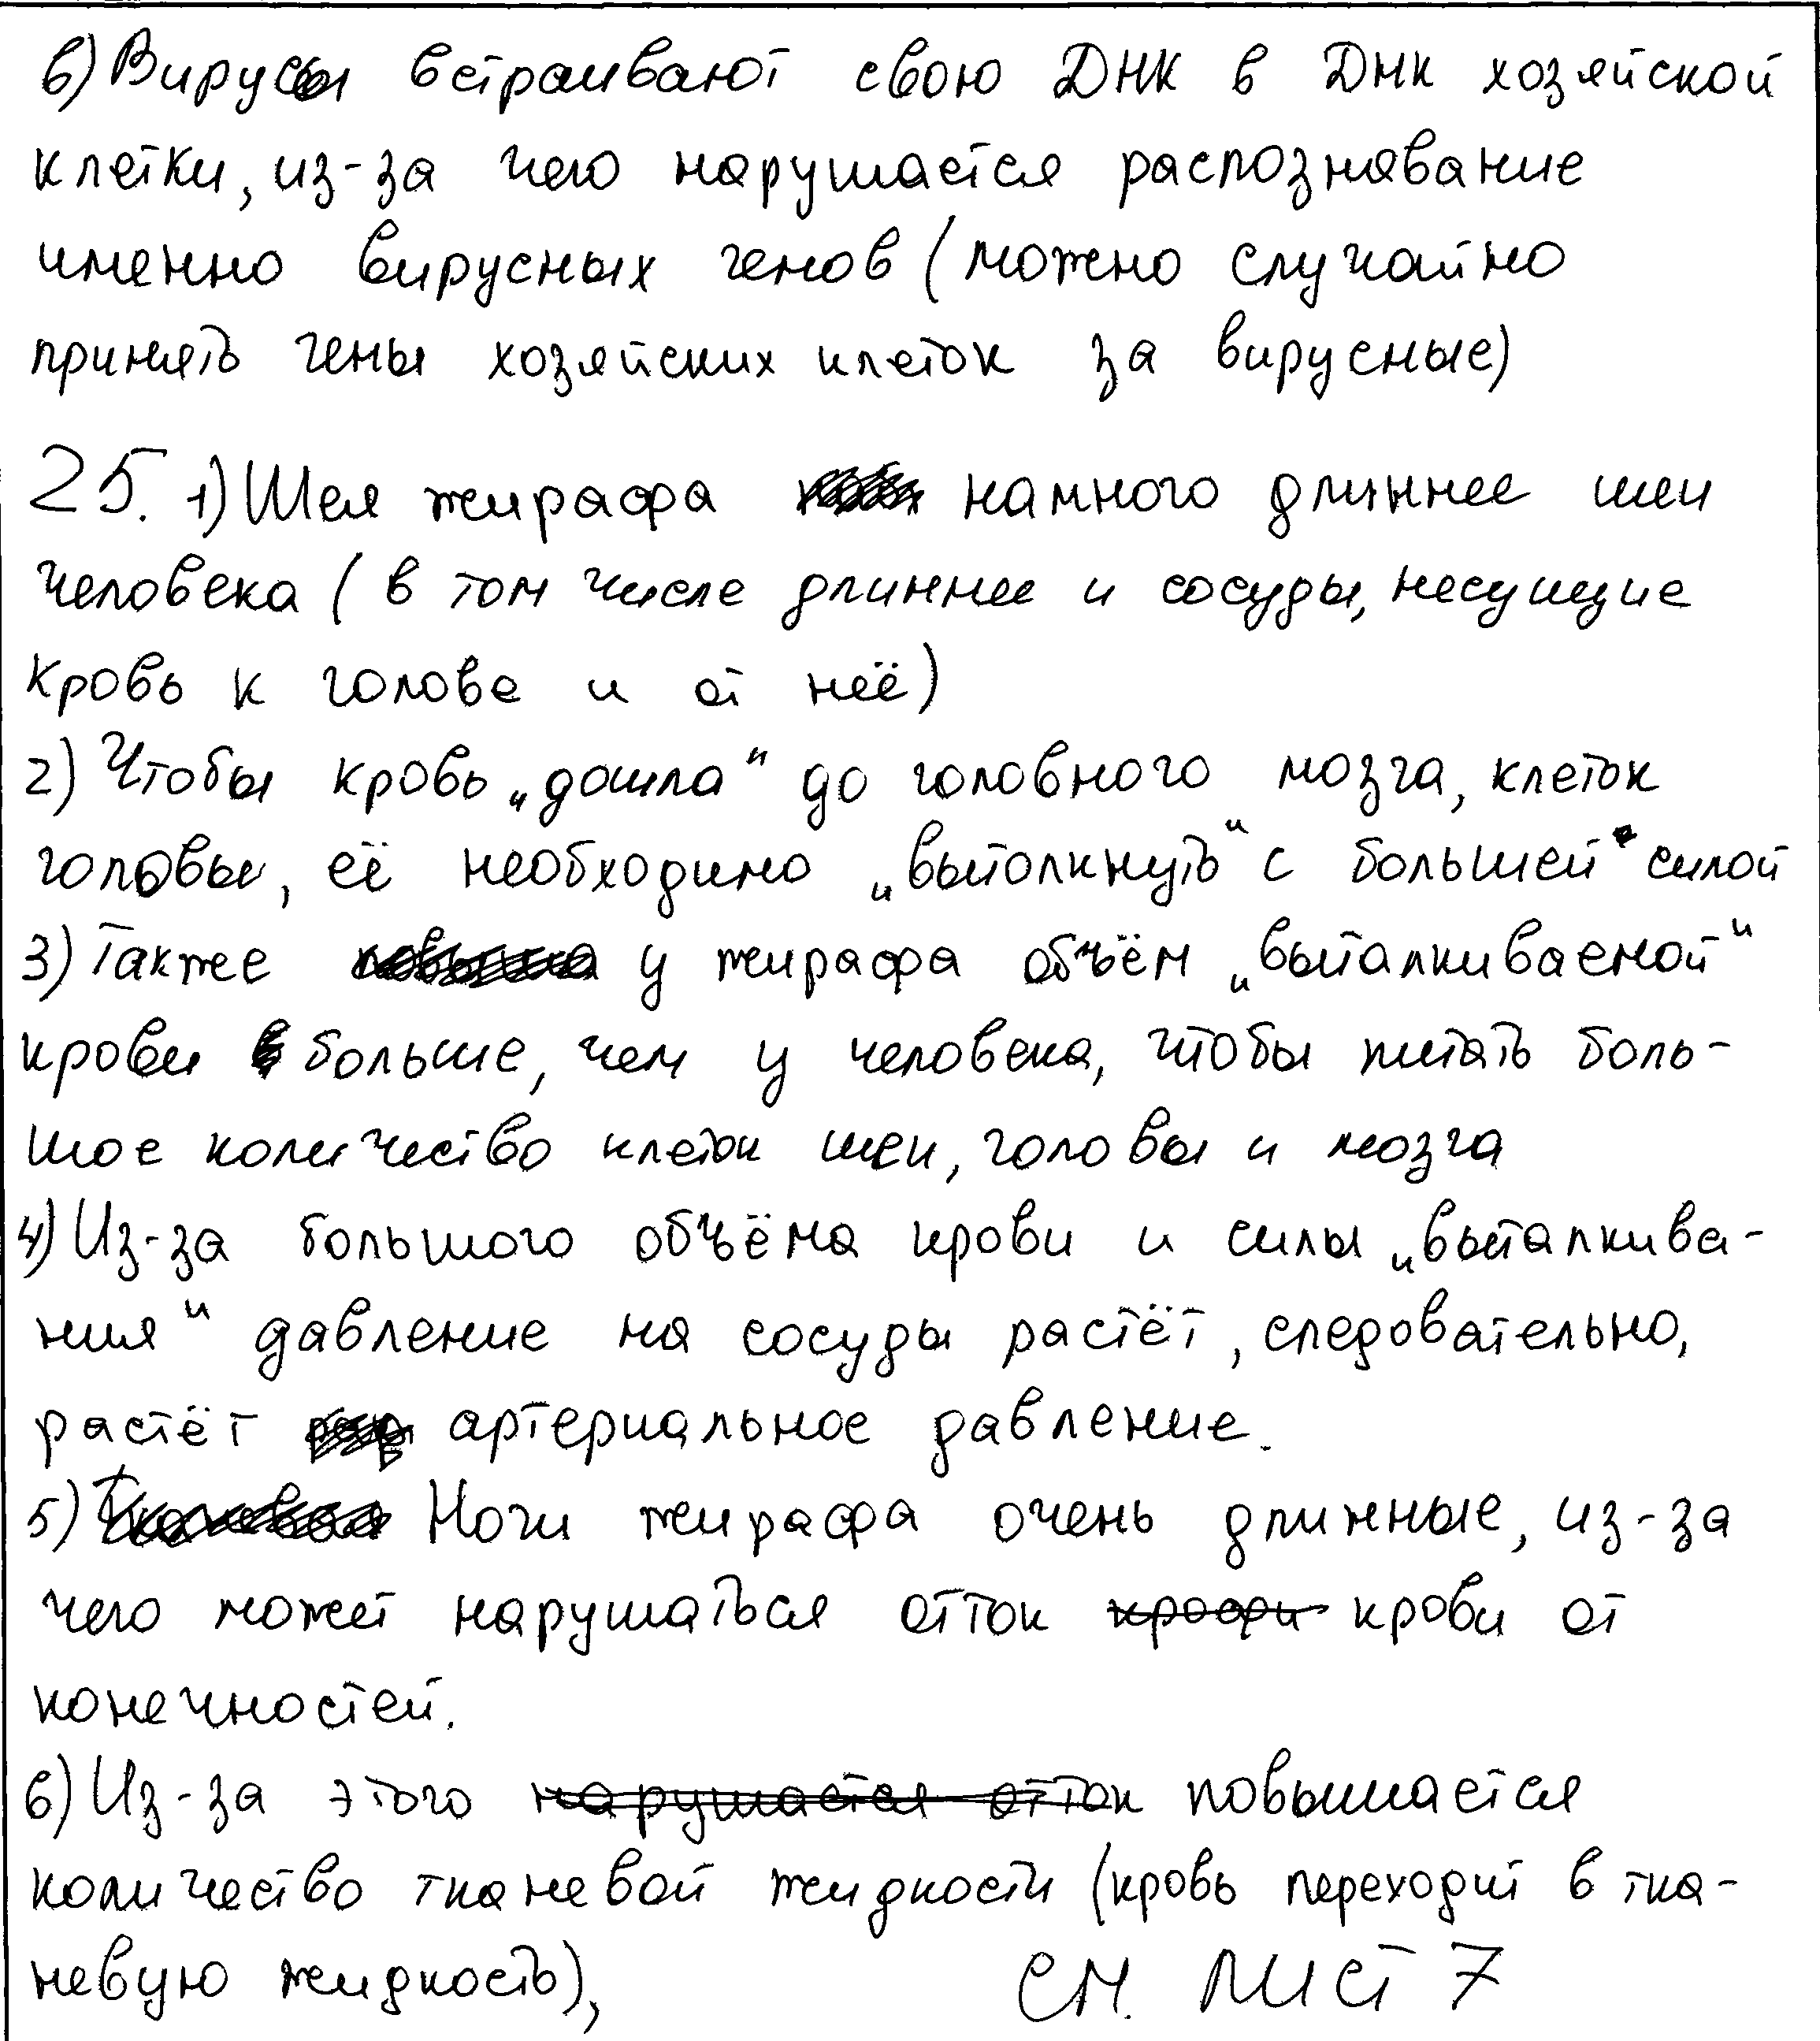 6) Вирусы встраивают свою ДНК в ДНК хозяйской
клетки, из-за чего нарушается распознавание
именно вирусных генов (можно случайно
принять гены хозяйских клеток за вирусные)
25. 1) Шея жирафа намного длиннее шеи
человека (в том числе длиннее и сосуды, несущие
кровь к голове и от неё)
2) Чтобы кровь „дошла“ до головного мозга, клеток
головы, её необходимо „вытолкнуть“ с большей силой
3) Также у жирафа объём „выталкиваемой“
крови больше, чем у человека, чтобы питать боль-
шое количество клеток шеи, головы и мозга
4) Из-за большого объёма крови и силы „выталкива-
ния“ давление на сосуды растёт, следовательно,
растёт артериальное давление.
5) Ноги жирафа очень длинные, из-за
чего может нарушаться отток крови от
конечностей.
6) Из-за этого нарушается отток повышается
количество тканевой жидкости (кровь переходит в тка-
невую жидкость),
см. лист 7